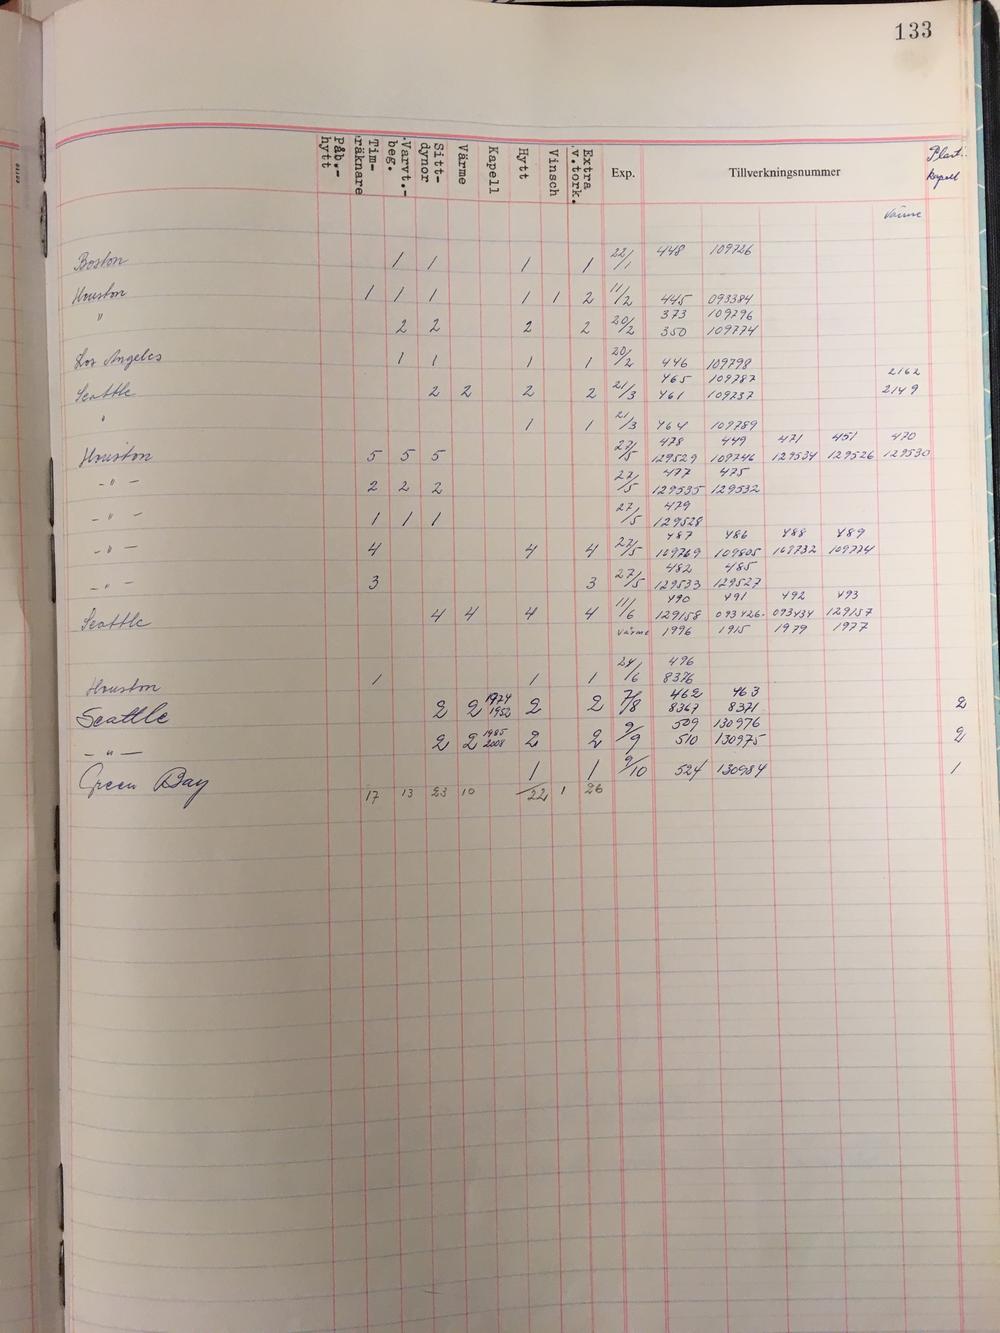 133
Påb.-hytt Tim-räknare Varvt.-beg. Sitt-dynor Värme Kapell Hytt Vinsch Extra v.tork. Exp. Tillverkningsnummer Plast. kapell
Värme
Boston 1 1 1 1 22/1 448 109726
Houston 1 1 1 1 1 2 11/2 445 093384
373 109796
" 2 2 2 2 20/2 350 109774
Los Angeles 1 1 1 1 20/2 446 109798
465 109787 2162
Seattle 2 2 2 2 21/3 461 109737 2149
" 1 1 21/3 464 109789
478 449 471 451 470
Houston 5 5 5 27/5 129529 109746 129534 129526 129530
477 475
-"- 2 2 2 27/5 129535 129532
479
-"- 1 1 1 27/5 129528
487 486 488 489
-"- 4 4 4 27/5 109769 109805 109732 109774
482 485
-"- 3 3 27/5 129533 129527
490 491 492 493
Seattle 4 4 4 4 11/6 129158 093426 093434 129157
Värme 1996 1915 1979 1977
496
Houston 1 1 1 24/6 8376
1974 462 463
Seattle 2 2 1952 2 2 7/8 8367 8371 2
1985 509 130976
-"- 2 2 2008 2 2 9/9 510 130975 2
Green Bay 1 1 9/10 524 130984 1
17 13 23 10 22 1 26